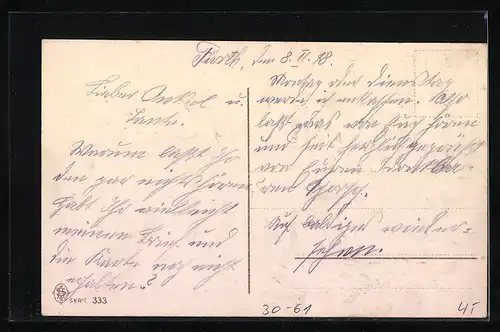 Fürth, den 8. II. 18.
Lieber Onkel u.
Tante.
Warum laßt Ihr
den gar nichts hören
Habt Ihr vielleicht
meinen Brief und
die Karte noch nicht
erhalten?
Montag oder Dienstag
werde ich entlassen. Also
laßt was von Euch hören
und seit herzlichst gegrüßt
von Euren
Auf baldiges wieder-
sehen.
SERIE 333
30-61